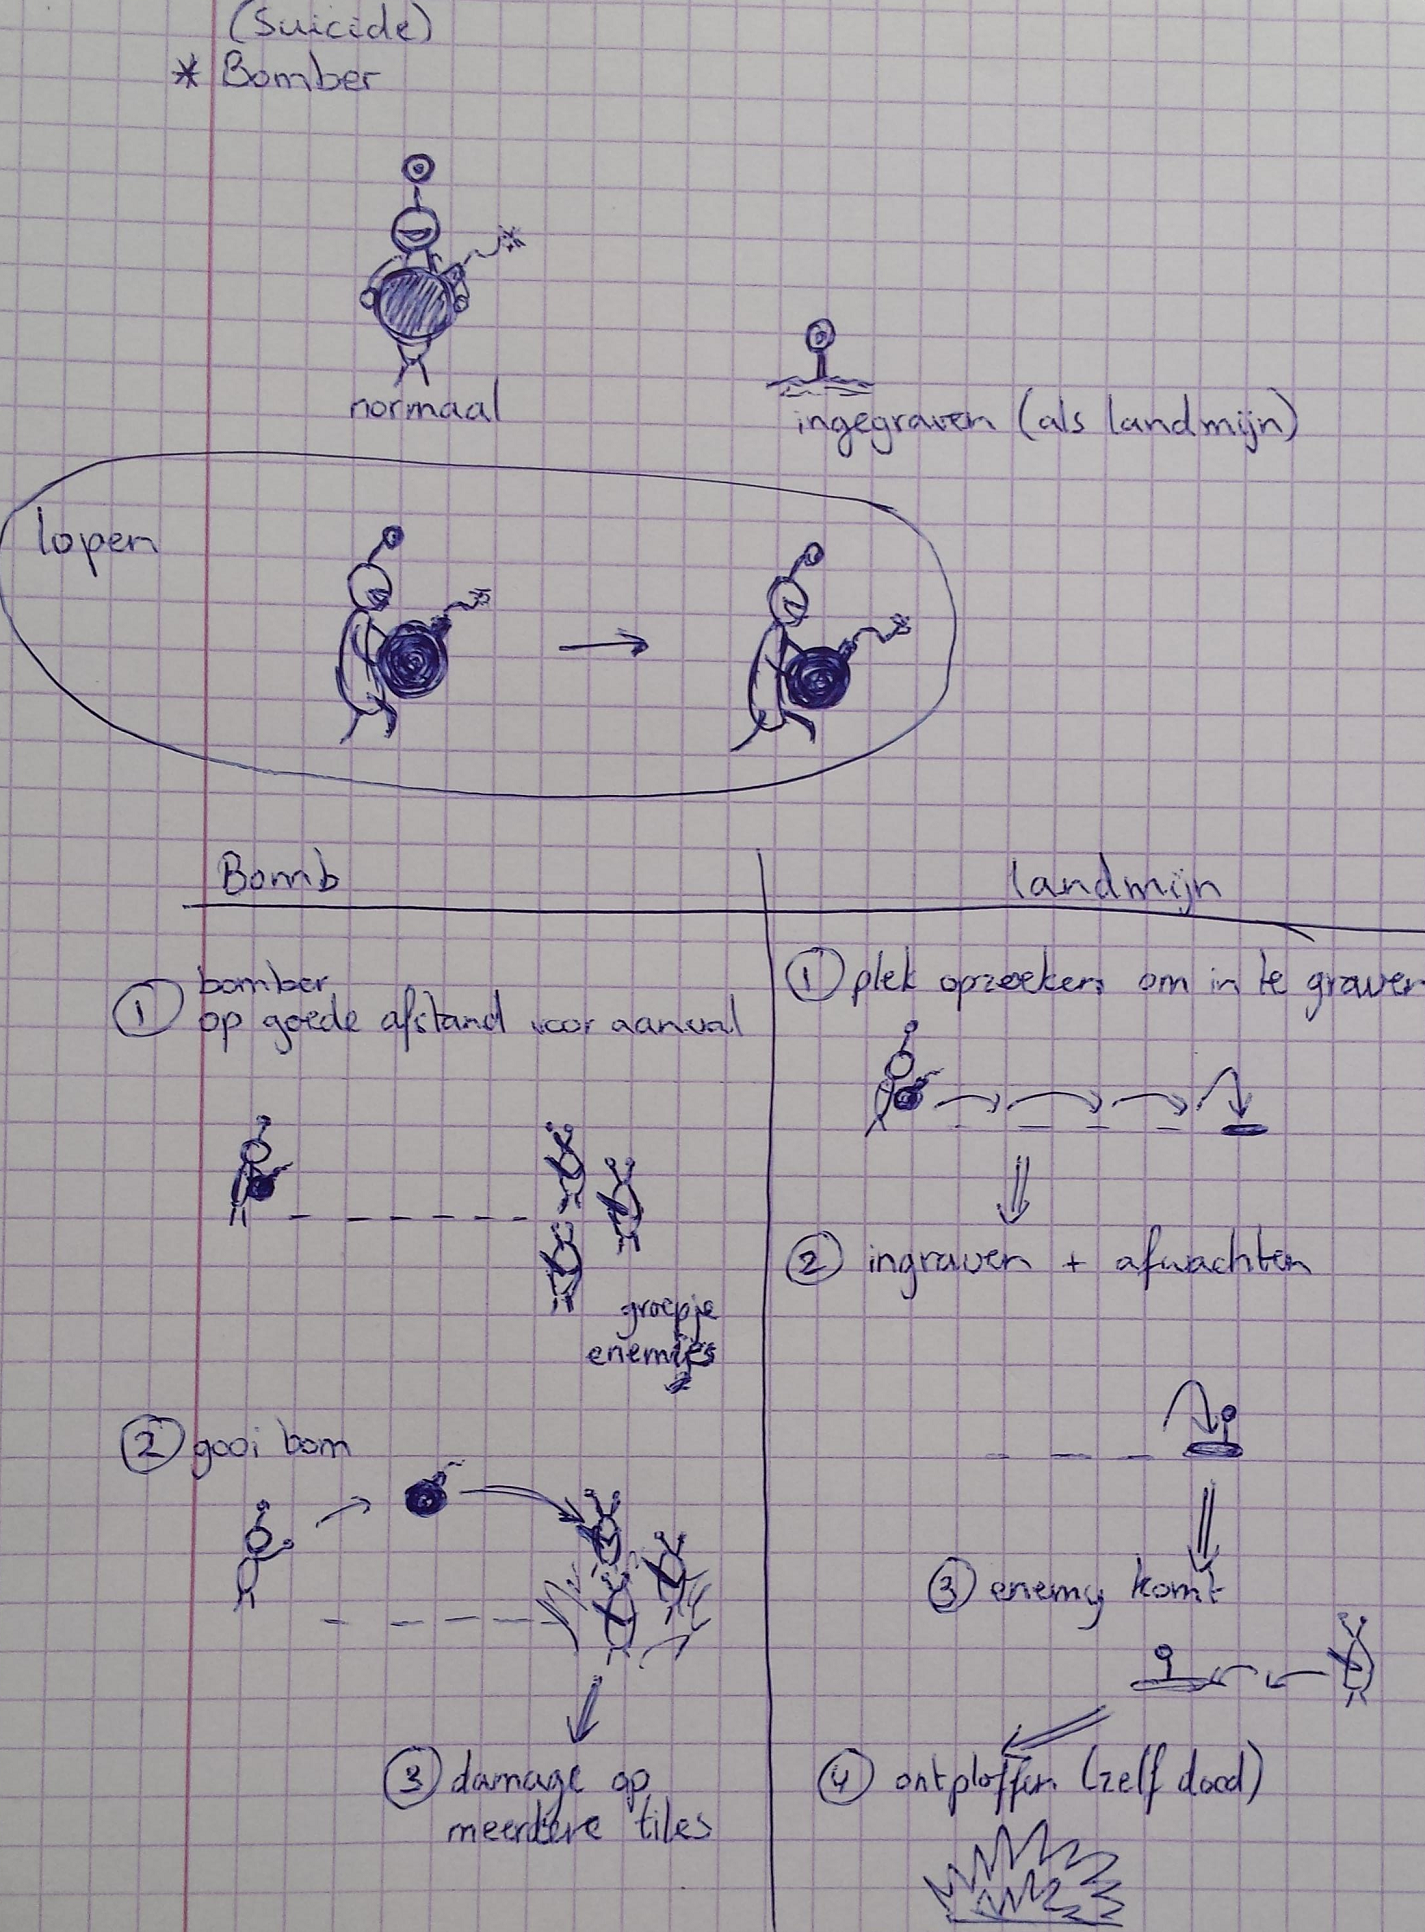 (Suicide)
* Bomber
normaal
ingegraven (als landmijn)
lopen
Bomb
① bomber
op goede afstand voor aanval
groepje
enemies
② gooi bom
③ damage op
meerdere tiles
landmijn
① plek opzoeken om in te graven
② ingraven + afwachten
③ enemy komt
④ ontploffen (zelf dood)